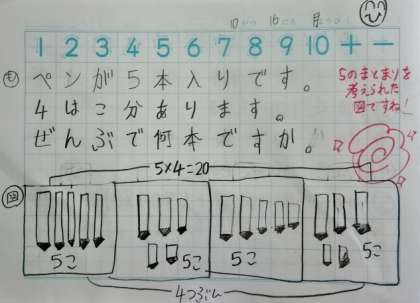 10がつ 16にち 月ようび
1 2 3 4 5 6 7 8 9 10 + −
も ペンが5本入りです。
4はこ分あります。
ぜんぶで何本ですか。
5のまとまりを
考えられた
図ですね
5×4=20
図
5こ 5こ 5こ 5こ
4つぶん